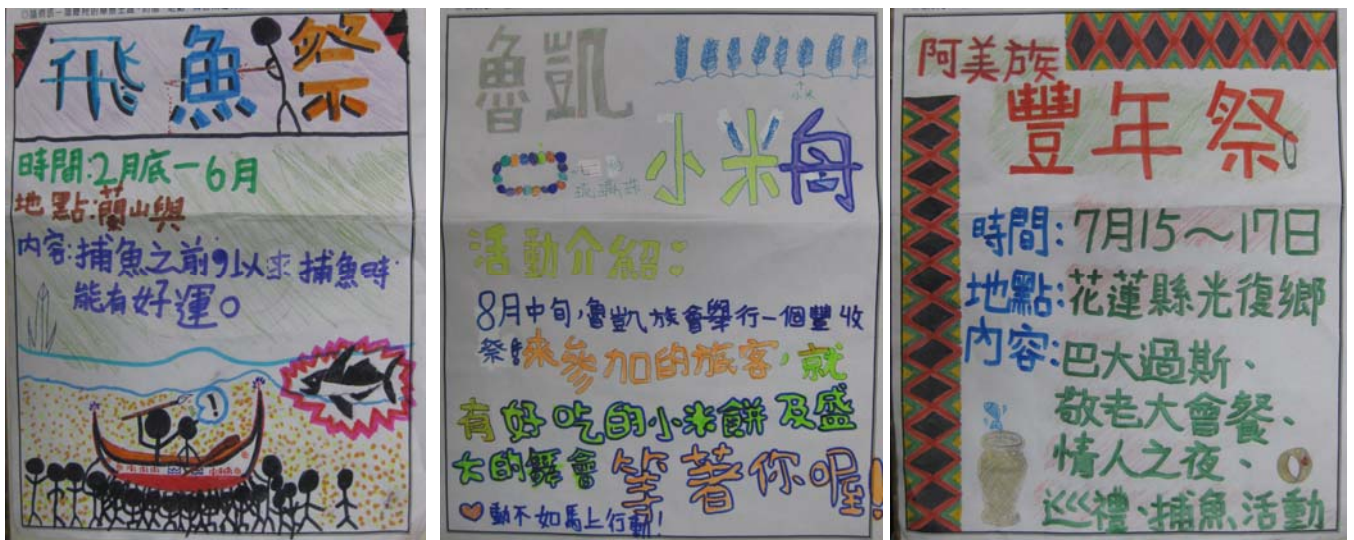 飛魚祭
時間:2月底－6月
地點:蘭山與
內容:捕魚之前,以求捕魚時
能有好運。
!
魯凱
小米
小米舟
活動介紹:
8月中旬,魯凱族會舉行一個豐收
祭,來參加的旅客,就
有好吃的小米餅及盛
大的舞會等著你喔!
動不如馬上行動!
阿美族
豐年祭
時間:7月15~17日
地點:花蓮縣光復鄉
內容:巴大過斯、
敬老大會餐、
情人之夜、
巡禮、捕魚活動